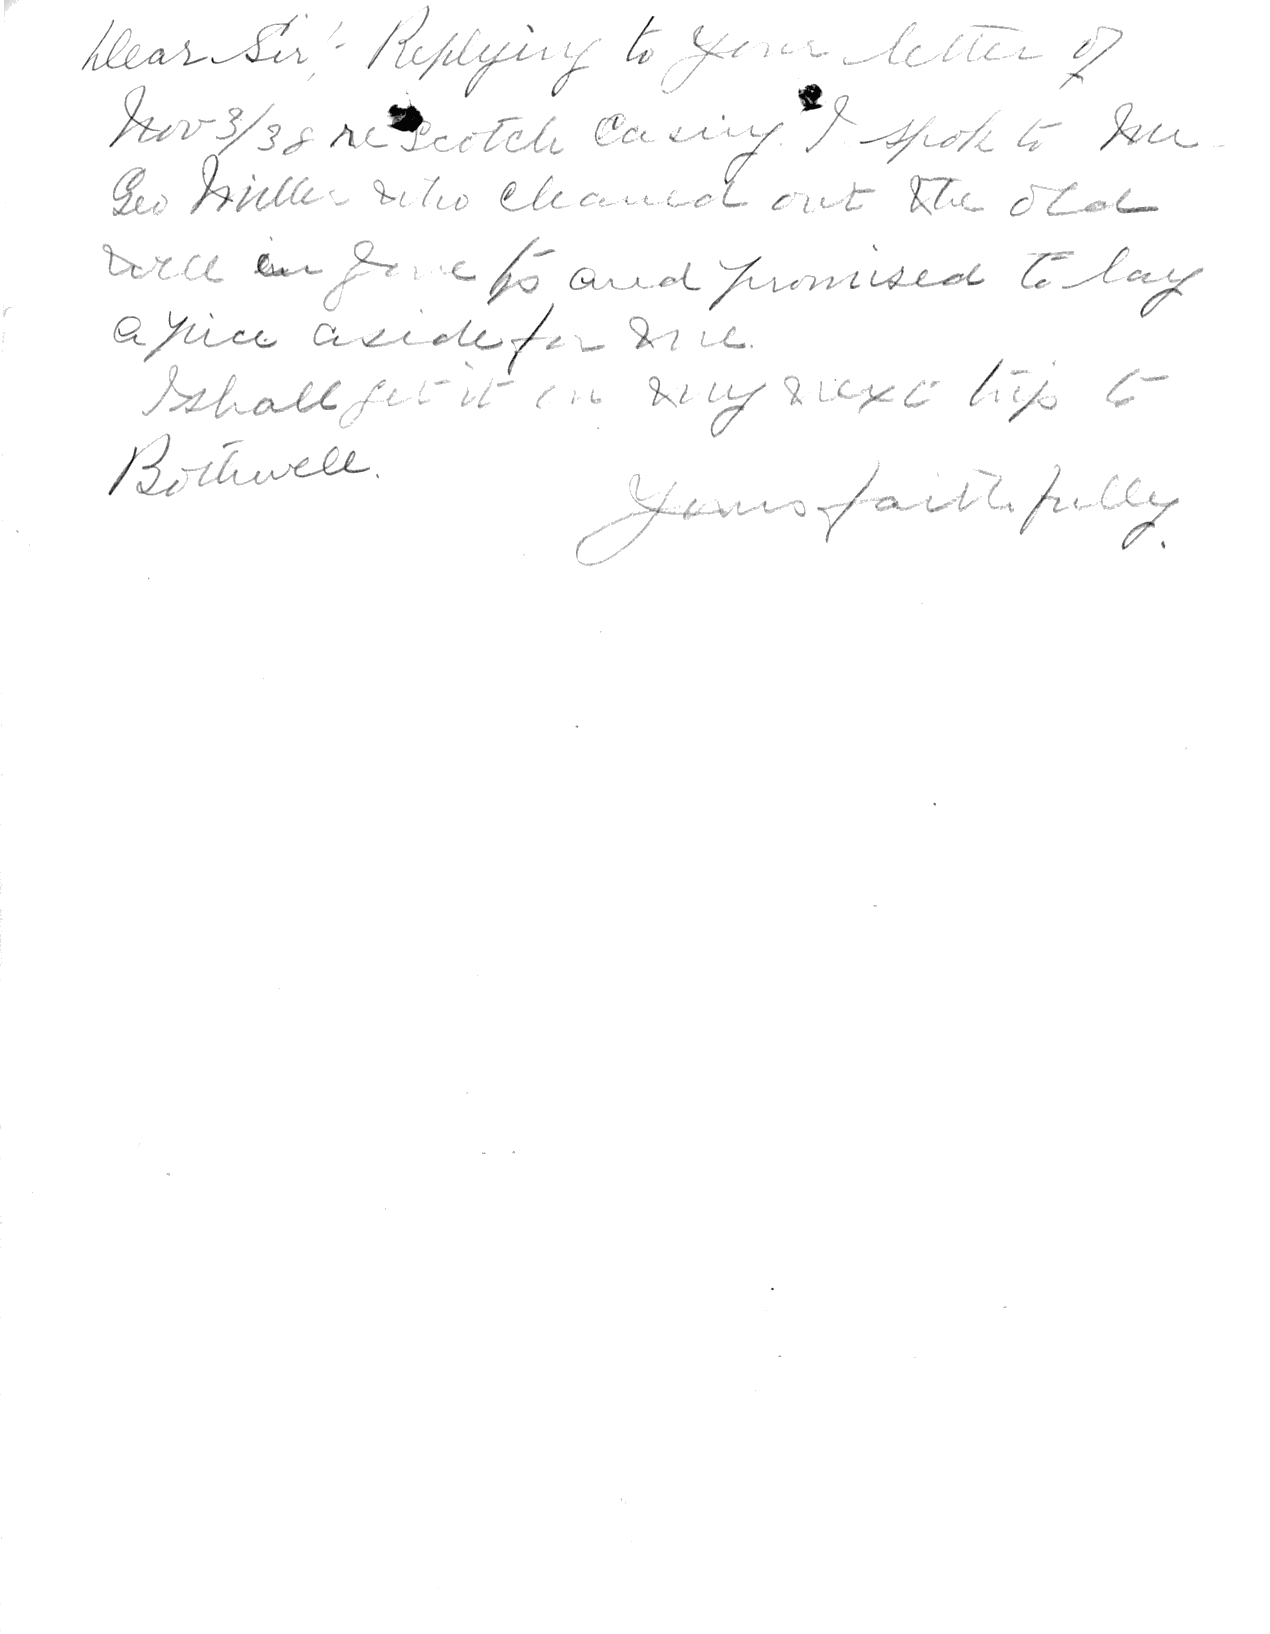 Dear Sir:- Replying to your letter of
Nov 3/38 re Scotch Casing. I spok to Mr
Geo Miller who cleaned out the old
well in and promised to lay
a pice aside for me.
I shall get it on my next trip to
Bothwell.
Yours faithfully.